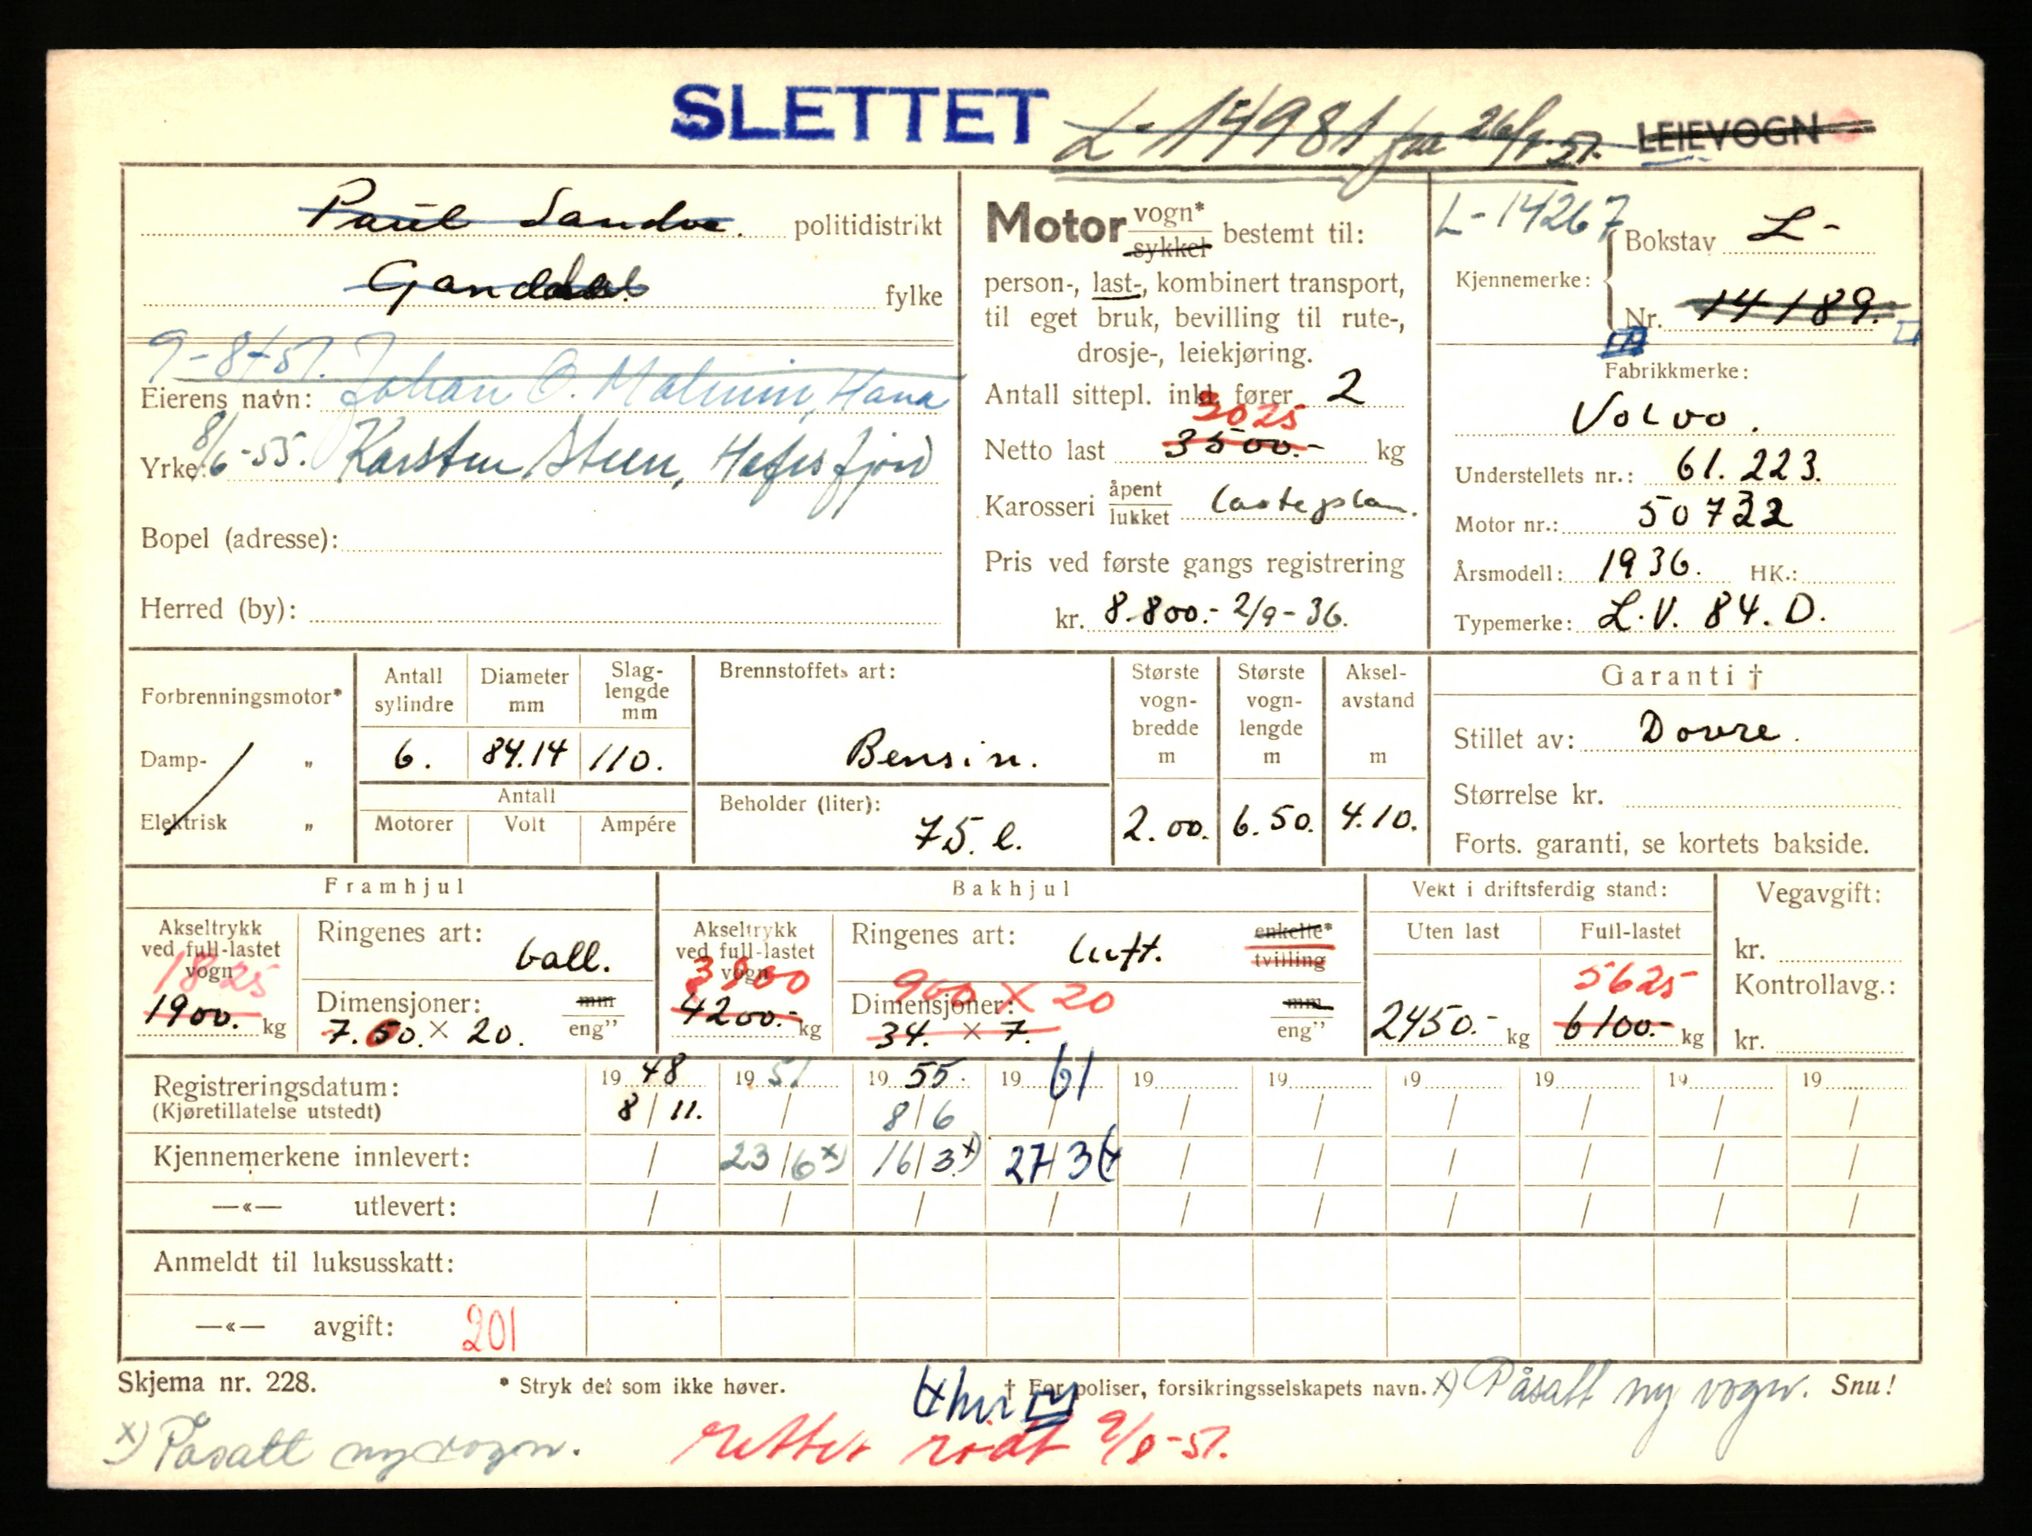 SLETTET L-14981 fra 26/9 51. LEIEVOGN
Paul Sandve. politidistrikt
Gandal. fylke
9-8-51. Johan O. Malmin, Hana
Eierens navn:
8/6-55. Karsten Steen, Hafrsfjord
Yrke:
Bopel (adresse):
Herred (by):
Motor vogn* sykkel bestemt til:
person-, last-, kombinert transport,
til eget bruk, bevilling til rute-,
drosje-, leiekjøring.
Antall sittepl. inkl. fører 2
3025
Netto last 3500.- kg
Karosseri åpent lukket lasteplan.
Pris ved første gangs registrering
kr. 8.800.- 2/9-36.
L-14267
Bokstav L-
Kjennemerke:
Nr. 14189.
Fabrikkmerke:
Volvo.
Understellets nr.: 61.223.
Motor nr.: 50732
Årsmodell: 1936. HK.:
Typemerke: L.V. 84.D.
Forbrenningsmotor*
Damp- "
Elektrisk "
Antall sylindre
Diameter mm
Slag-lengde mm
6. 84.14 110.
Antall
Motorer Volt Ampére
Brennstoffets art:
Bensin.
Beholder (liter):
75.l.
Største vogn-bredde m
Største vogn-lengde m
Aksel-avstand m
2.00. 6.50. 4.10.
Garanti †
Stillet av: Dovre.
Størrelse kr.
Forts. garanti, se kortets bakside.
Framhjul
Akseltrykk ved full-lastet vogn
1825
1900. kg
Ringenes art: ball.
Dimensjoner: mm eng"
7.50. × 20.
Bakhjul
Akseltrykk ved full-lastet vogn
3800
4200.- kg
Ringenes art: luft. enkelte* tvilling
900 × 20
Dimensjoner: mm eng"
34. × 7.
Vekt i driftsferdig stand:
Uten last Full-lastet
5625
2450.- kg 6100.- kg
Vegavgift:
kr.
Kontrollavg.:
kr.
Registreringsdatum: 19 48 19 51 19 55 19 61 19 19 19 19 19 19
(Kjøretillatelse utstedt) 8/11. / 8/6 / / / / / / /
Kjennemerkene innlevert: / 23/6 x) 16/3 x) 27/3 / / / / / /
—«— utlevert: / / / / / / / / / /
Anmeldt til luksusskatt:
—«— avgift: 201
Skjema nr. 228. * Stryk det som ikke høver. † For poliser, forsikringsselskapets navn. x) Påsatt ny vogn. Snu!
x) Påsatt ny vogn. rettet rødt 9/8-51.